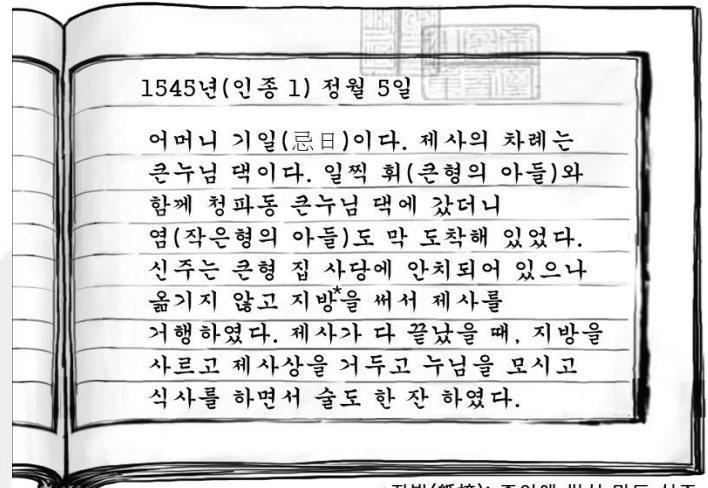 1545년(인종 1) 정월 5일
어머니 기일(忌日)이다. 제사의 차례는
큰누님 댁이다. 일찍 휘(큰형의 아들)와
함께 청파동 큰누님 댁에 갔더니
염(작은형의 아들)도 막 도착해 있었다.
신주는 큰형 집 사당에 안치되어 있으나
옮기지 않고 지방*을 써서 제사를
거행하였다. 제사가 다 끝났을 때, 지방을
사르고 제사상을 거두고 누님을 모시고
식사를 하면서 술도 한 잔 하였다.